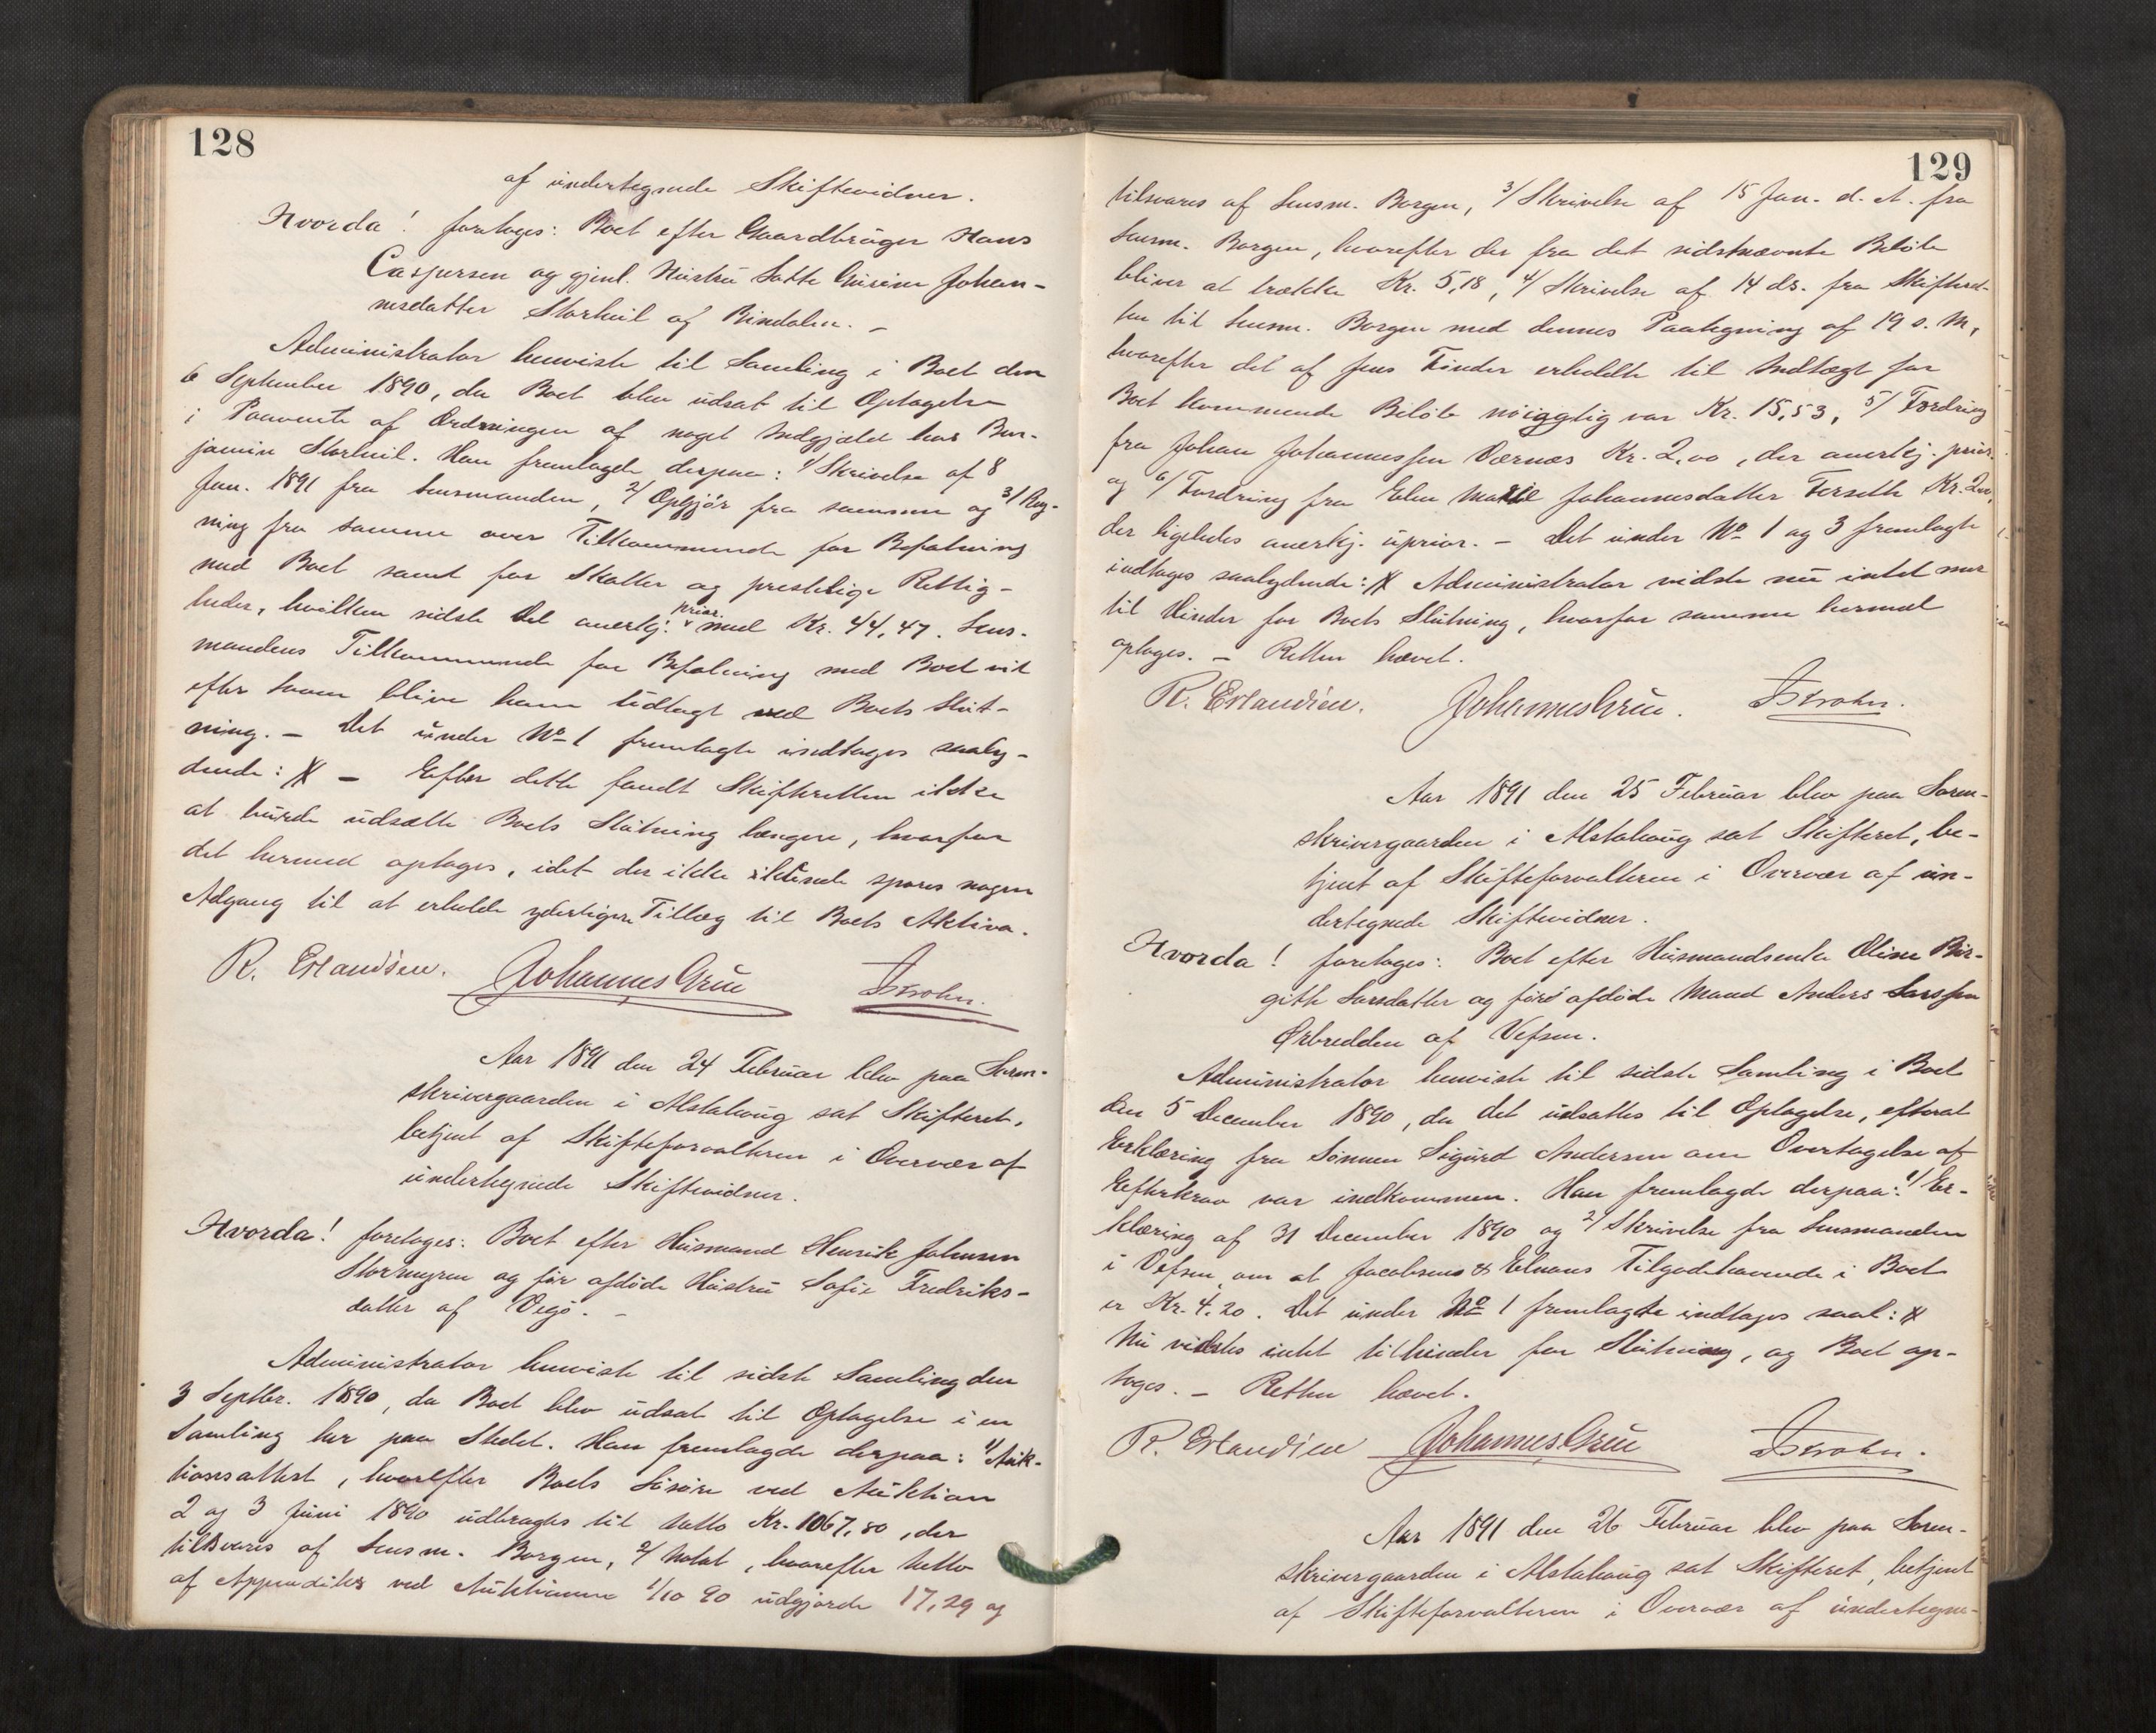 128
af undertegnede Skiftevidner.
Hvorda! foretoges: Boet efter Gaardbruger Hans
Caspersen og gjenl. Hustru Lotte Gurine Johan-
nesdatter Storheil af Bindalen. –
Administrator henviste til Samling i Boet den
6 September 1890, da Boet blev udsat til Optagelse
i Paavente af Ordningen af noget Indgjæld hos Ben-
jamin Storheil. Han fremlagde derpaa: 1/ Skrivelse af 8
Jan. 1891 fra Lensmanden, 2/ Opgjör fra samme og 3/ Reg-
ning fra samme over Tilkommende for Befatning
med Boet samt for Skatter og prestelige Rettig-
heder, hvilken sidste Del anerkj. prior. med Kr. 44,47. Lens-
mandens Tilkommende for Befatning med Boet vil
efter Loven blive ham udlagt ved Boets Slut-
ning. – Det under No 1 fremlagte indtages saaly-
dende: # – Efter dette fandt Skifteretten ikke
at burde udsætte Boets Slutning længere, hvorfor
det hermed optages, idet der ikke skjönnede spores nogen
Adgang til at erholde yderligere Tillæg til Boets Aktiva.
R. Erlandsen. Johannes Grüe
Aar 1891 den 24 Februar blev paa Soren-
skrivergaarden i Alstahoug sat Skifteret,
betjent af Skifteforvalteren i Overvær af
undertegnede Skiftevidner.
Hvorda! foretoges: Boet efter Husmand Henrik Johnsen
Stormyren og för afdöde Hustru Sofie Fredriks-
datter af Vegö. –
Administrator henviste til sidste Samling den
3 Septbr. 1890, da Boet blev udsat til Optagelse i en
Samling her paa Stedet. Han fremlagde derpaa: 1/ Auk-
tionsattest, hvorefter Boets Lösöre ved Auktion
2 og 3 Juni 1890 udbragtes til Netto Kr. 1067,80, der
tilsvares af Lensm. Borgen, 2/ Notat, hvorefter Netto
af Appenditer ved Auktionen 1/10 90 udgjorde 17,29 og
129
tilsvares af Lensm. Borgen, 3/ Skrivelse af 15 Jan. d. A. fra
Lensm. Borgen, hvorefter der fra det sidstnævnte Beløb
bliver at trække Kr. 5,18, 4/ Skrivelse af 14 ds. fra Skifteret-
ten til Lensm. Borgen med dennes Paategning af 19 s. M,
hvorefter det af Jens Tinder erholdte til Indtægt for
Boet kommende Beløb nöiagtig var Kr. 15,53, 5/ Fordring
fra Johan Johannessen Værnæs Kr. 2,00, der anerkj. prior.
og 6/ Fordring fra Elen Marie Johannesdatter Ferseth Kr. 2,00,
der ligeledes anerkj. uprior. – Det under No 1 og 3 fremlagte
indtages saalydende: # Administrator vidste nu intet mer
til Hinder for Boets Slutning, hvorfor samme hermed
optoges. – Retten hævet.
R. Erlandsen. Johannes Grüe.
Aar 1891 den 25 Februar blev paa Soren-
skrivergaarden i Alstahoug sat Skifteret, be-
tjent af Skifteforvalteren i Overvær af un-
dertegnede Skiftevidner.
Hvorda! foretoges: Boet efter Husmandsenke Oline Bir-
gitte Larsdatter og före afdöde Mand Anders Larssen
Ørbredden af Vefsen.
Administrator henviste til sidste Samling i Boet
den 5 December 1890, da det udsattes til Optagelse, efterat
Erklæring fra Sönnen Sigurd Andersen om Overtagelse af
Efterkrav var indkommen. Han fremlagde derpaa: 1/ Er-
klæring af 31 December 1890 og 2/ Skrivelse fra Lensmanden
i Vefsen, om at Jacobsens & Elnans Tilgodehavende i Boet
er Kr. 4.20. Det under No 1 fremlagte indtages saal: #
Nu vidstes intet tilhinder for Slutning, og Boet op-
toges. – Retten hævet.
R. Erlandsen Johannes Grüe
Aar 1891 den 26 Februar blev paa Soren-
skrivergaarden i Alstahoug sat Skifteret, betjent
af Skifteforvalteren i Overvær af undertegne-